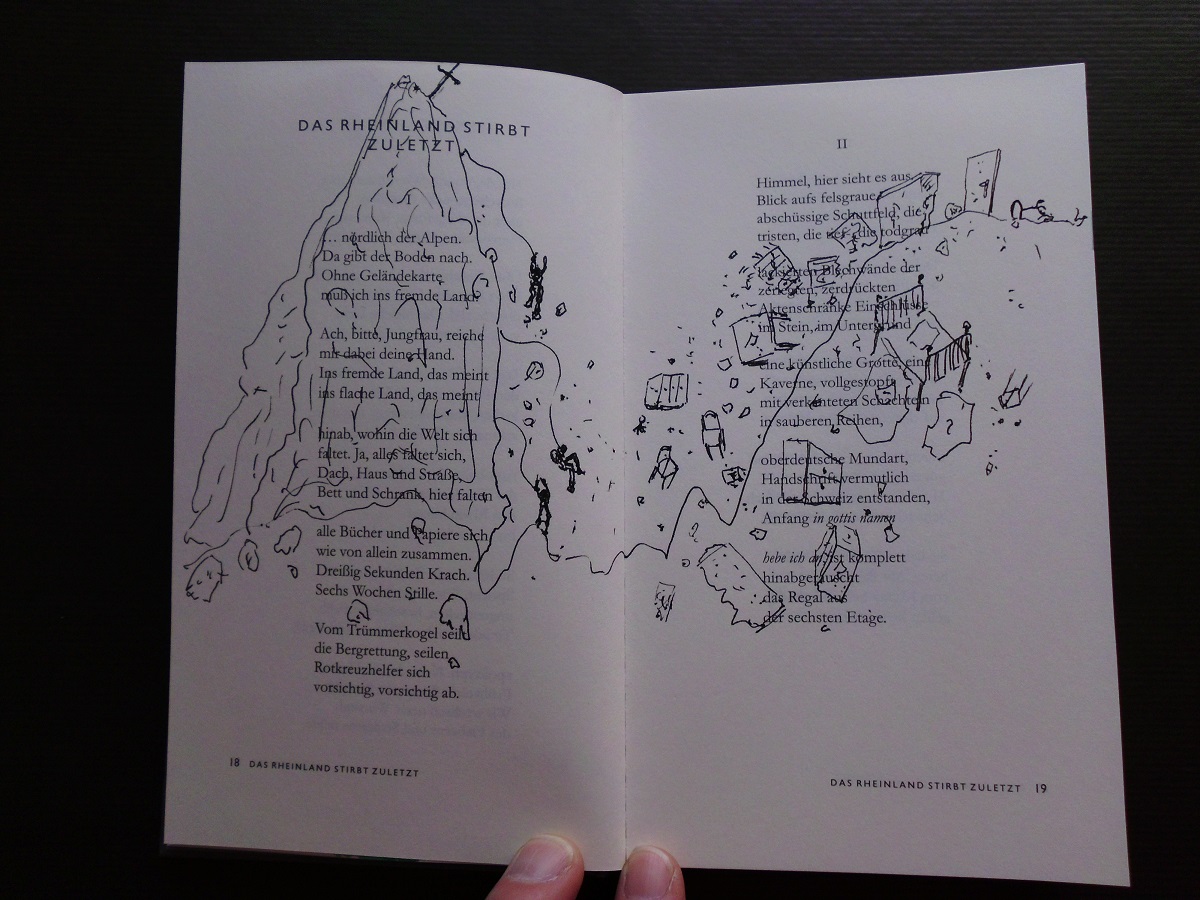 DAS RHEINLAND STIRBT
ZULETZT
I
… nördlich der Alpen.
Da gibt der Boden nach.
Ohne Geländekarte
muß ich ins fremde Land.
Ach, bitte, Jungfrau, reiche
mir dabei deine Hand.
Ins fremde Land, das meint
ins flache Land, das meint
hinab, wohin die Welt sich
faltet. Ja, alles faltet sich,
Dach, Haus und Straße,
Bett und Schrank, hier falten
alle Bücher und Papiere sich
wie von allein zusammen.
Dreißig Sekunden Krach.
Sechs Wochen Stille.
Vom Trümmerkogel seilt
die Bergrettung, seilen
Rotkreuzhelfer sich
vorsichtig, vorsichtig ab.
18 DAS RHEINLAND STIRBT ZULETZT
II
Himmel, hier sieht es aus.
Blick aufs felsgraue,
abschüssige Schuttfeld, die
tristen, die tief, die todgrau
lackierten Blechwände der
zerlegten, zerdrückten
Aktenschränke Einschlüsse
im Stein, im Untergrund
eine künstliche Grotte, eine
Kaverne, vollgestopft
mit verkanteten Schachteln
in sauberen Reihen,
oberdeutsche Mundart,
Handschrift vermutlich
in der Schweiz entstanden,
Anfang in gottis namen
hebe ich an, ist komplett
hinabgerauscht
das Regal aus
der sechsten Etage.
DAS RHEINLAND STIRBT ZULETZT 19